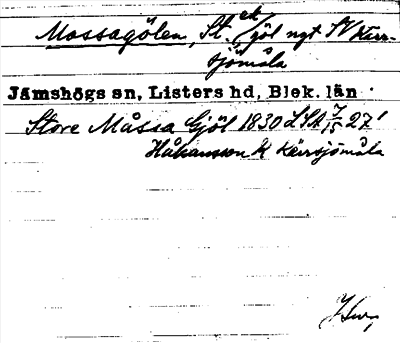 Mossagölen, St. ek/göl ngt SV Kärr-
sjömåla
Jämshögs sn, Listers hd, Blek. län
Store Måssa Gjöl 1830 LSA 7/15 27'
Håkansson K Kärrsjömåla